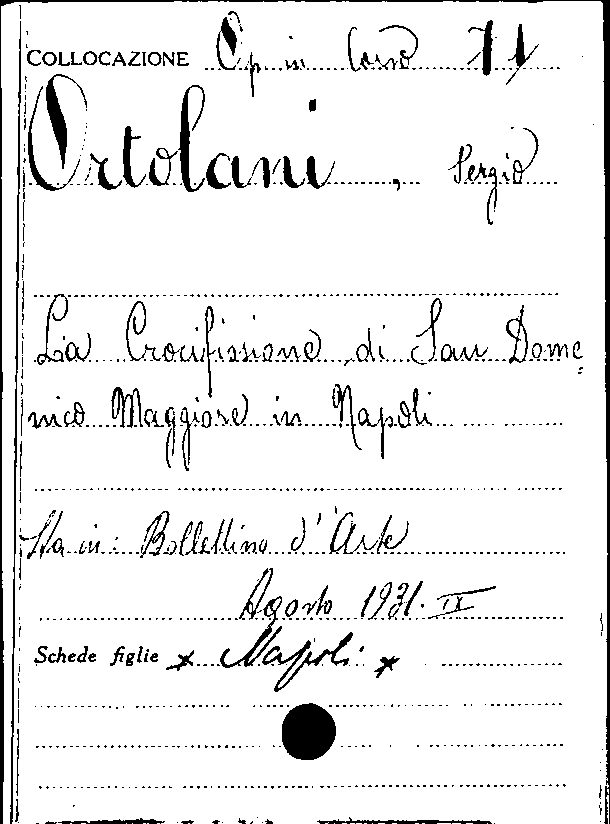 COLLOCAZIONE Op in Corso 71
Ortolani, Sergio
La Crocifissione di San Dome=
nico Maggiore in Napoli
Sta in: Bollettino d'Arte
Agosto 1931. IX
Schede figlie * Napoli *